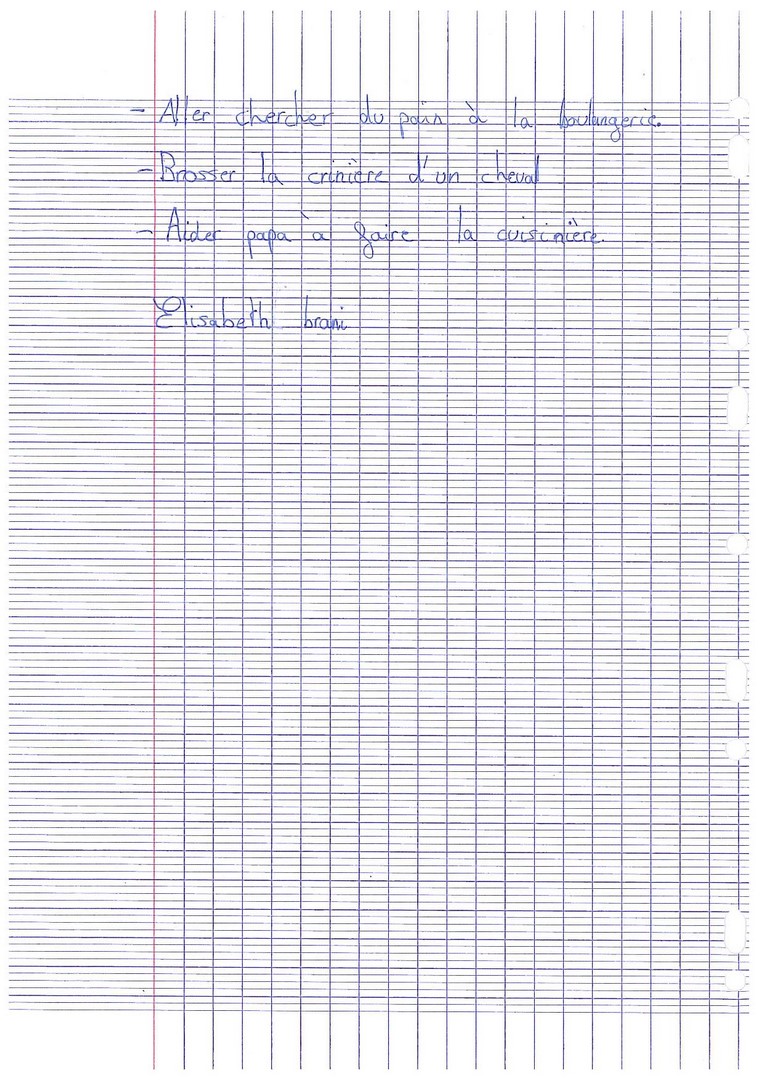 - Aller chercher du pain à la boulangerie.
- Brosser la crinière d'un cheval
- Aider papa à faire la cuisinière.
Elisabeth brami